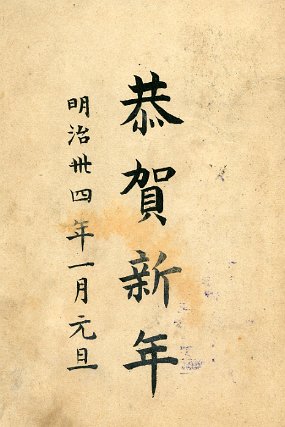 恭賀新年
明治卅四年一月元旦